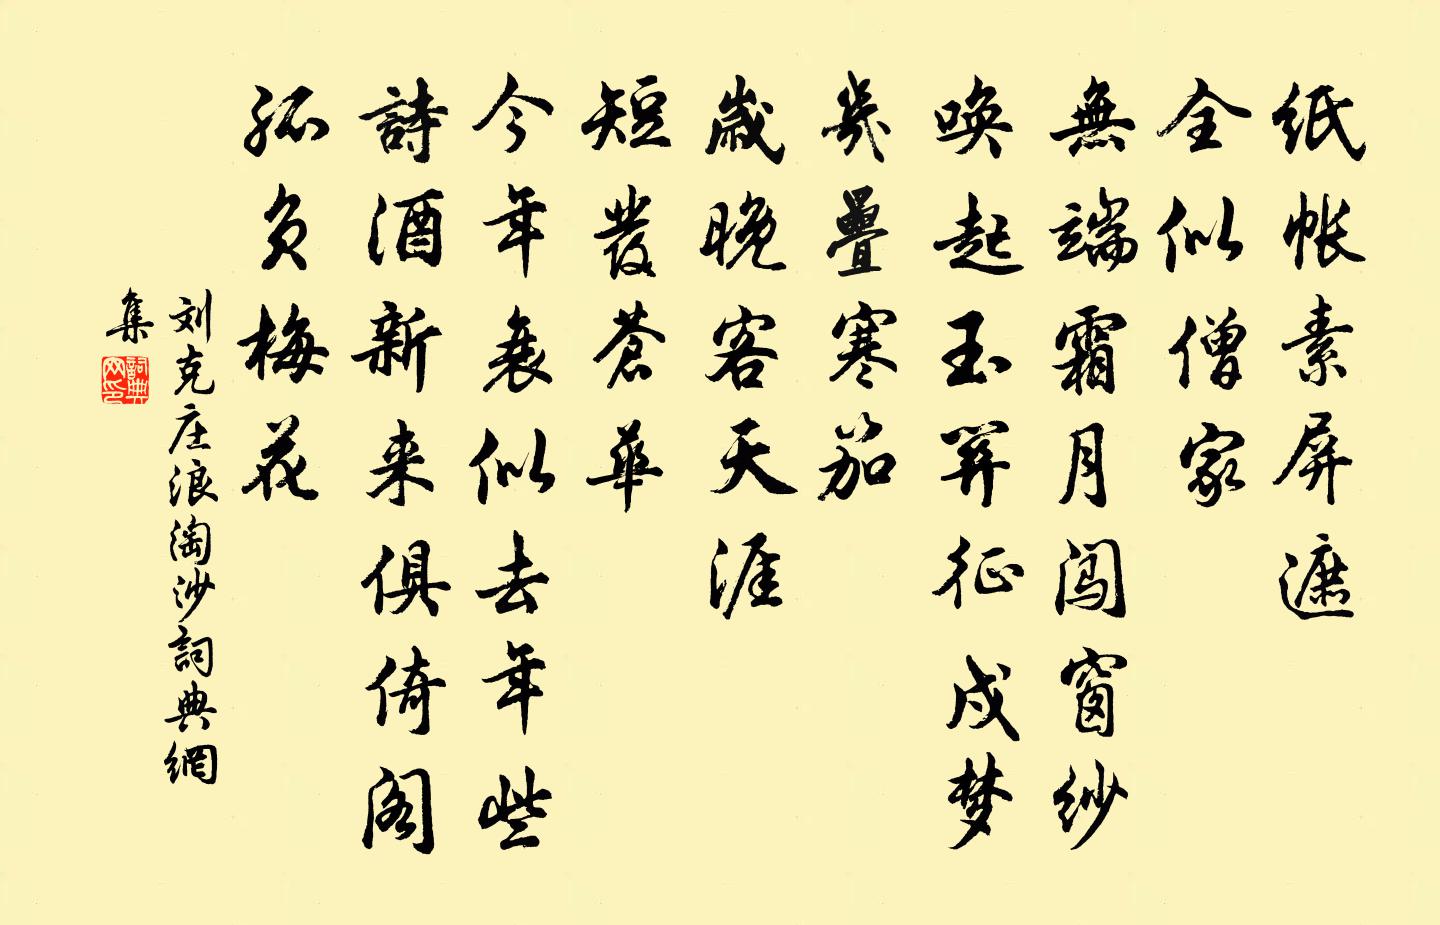 纸帐素屏遮
全似僧家
無端霜月闯窗紗
唤起玉關征戍梦
幾疊寒笳
歲晚客天涯
短發蒼華
今年衰似去年些
詩酒新来俱倚阁
孤负梅花
刘克庄浪淘沙詞典網
集
詞典网印